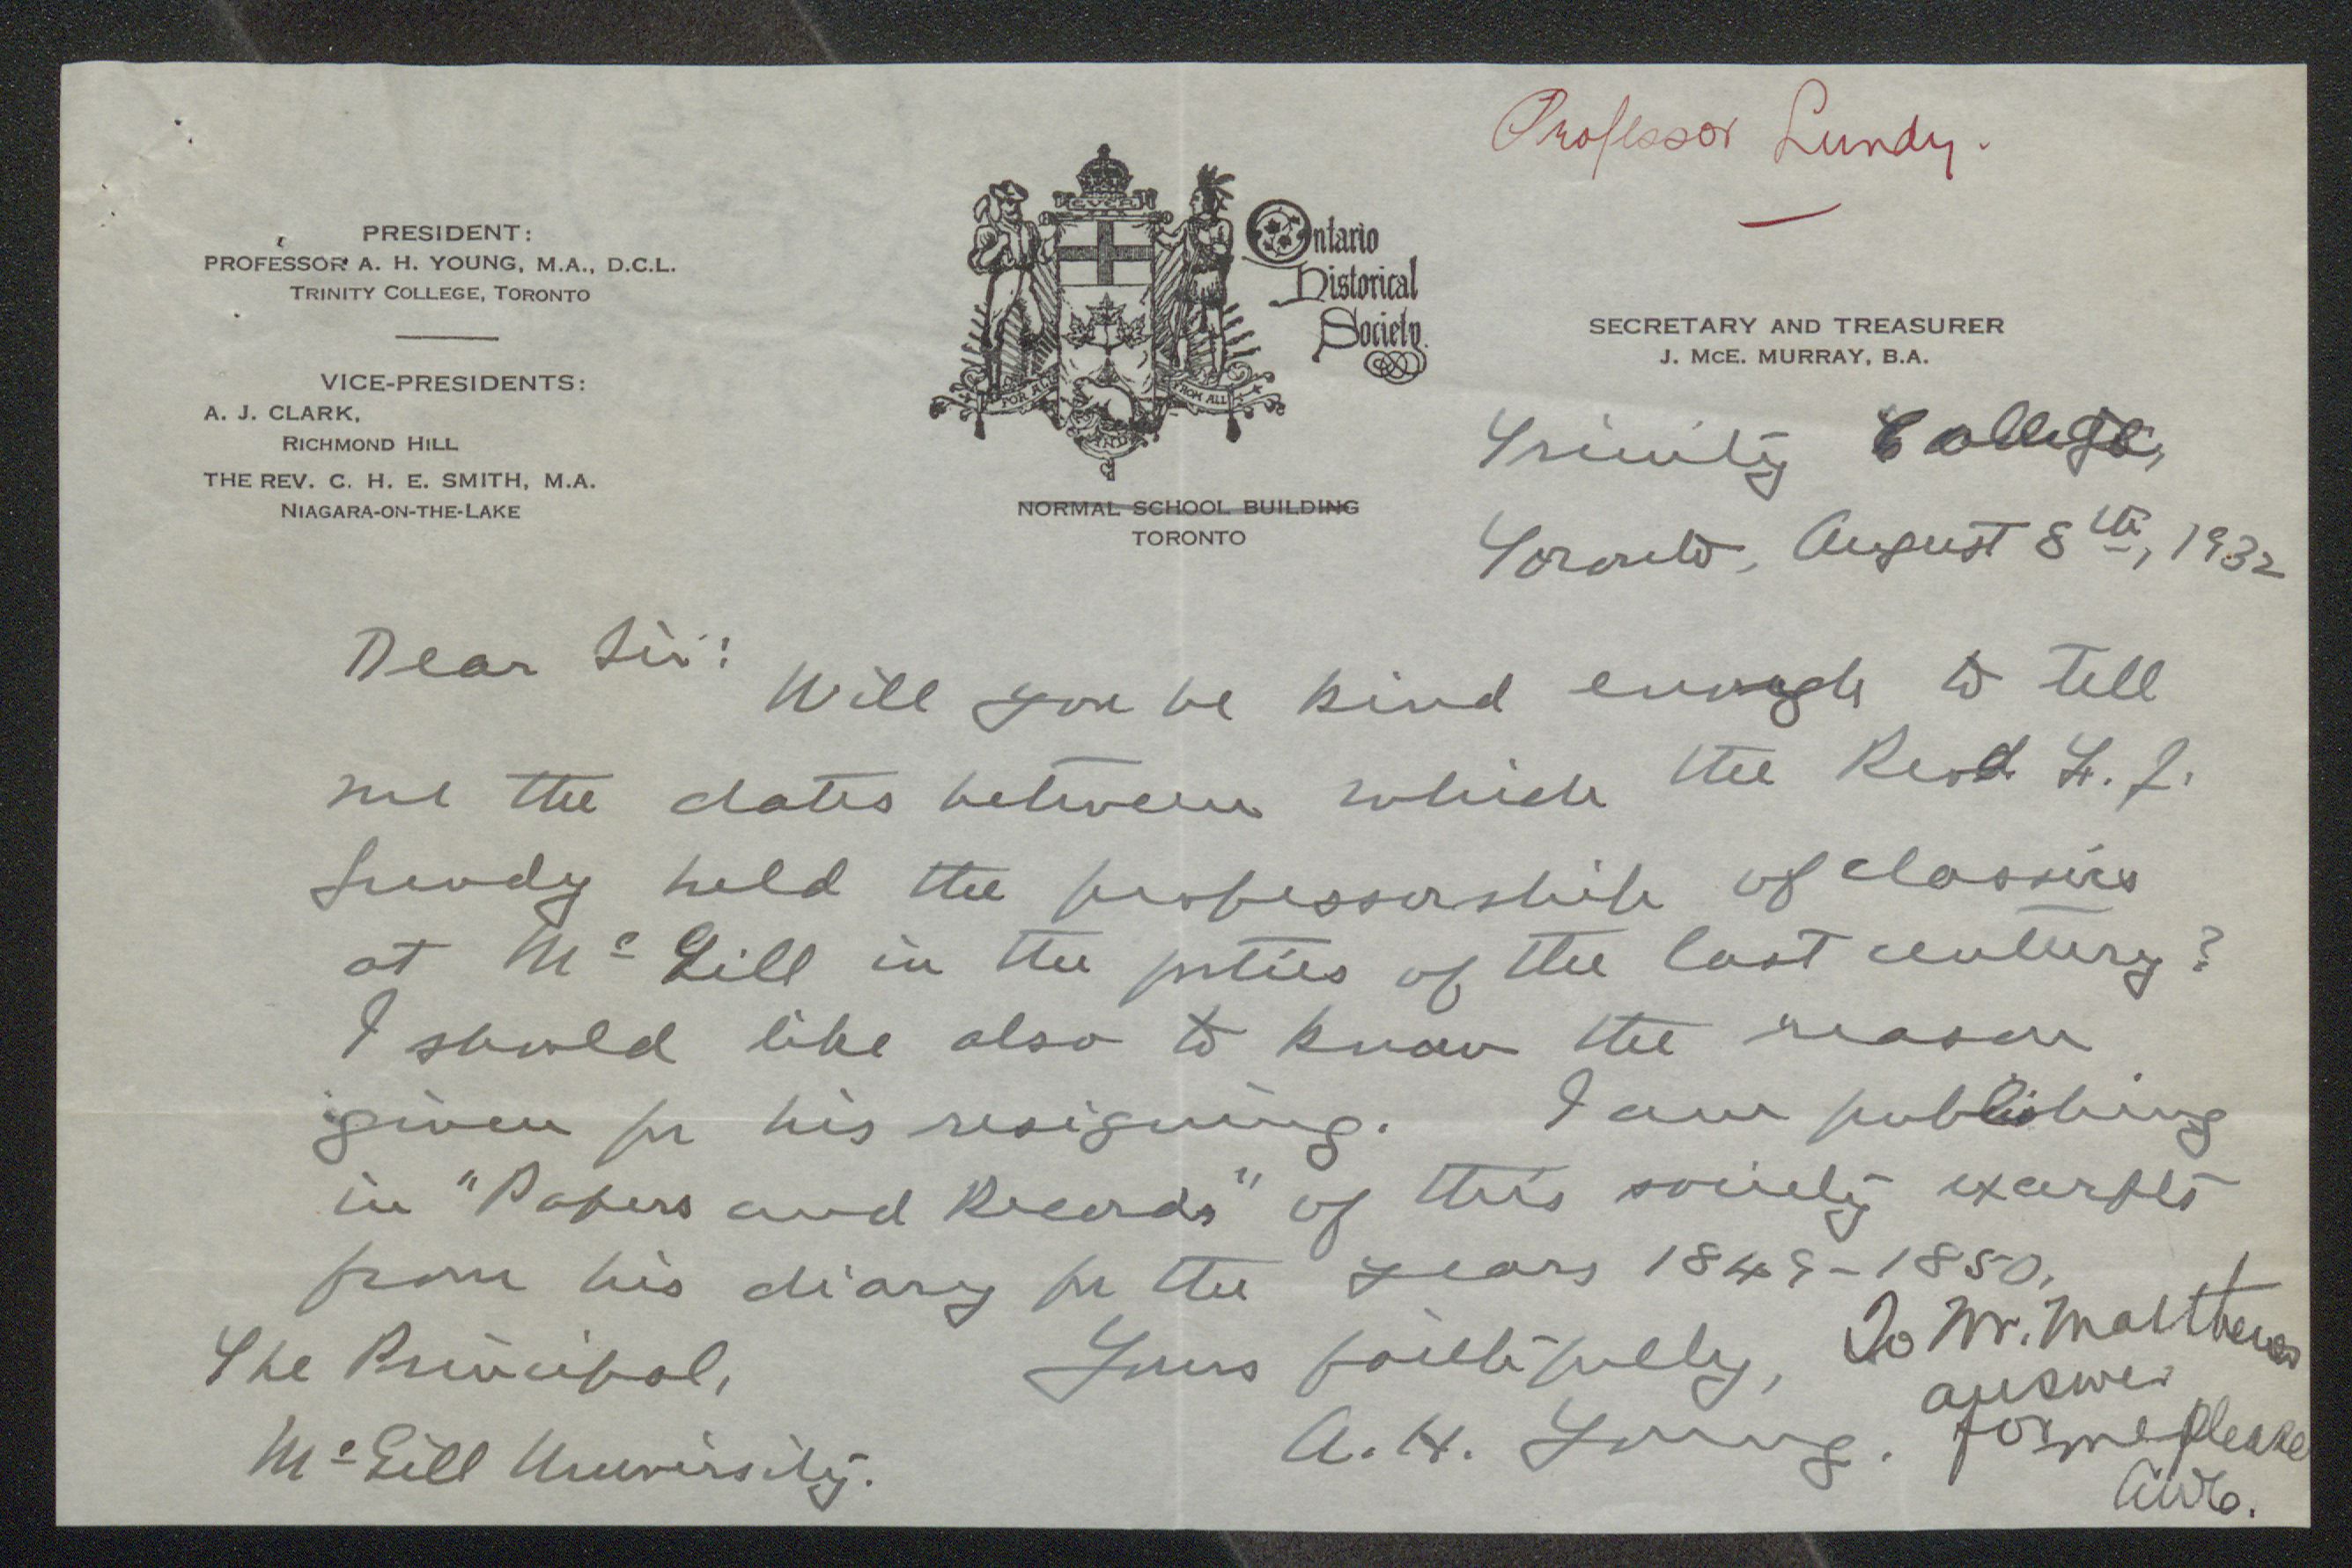 Professor Lundy.
PRESIDENT:
PROFESSOR A. H. YOUNG, M.A., D.C.L.
TRINITY COLLEGE, TORONTO
VICE-PRESIDENTS:
A. J. CLARK,
RICHMOND HILL
THE REV. C. H. E. SMITH, M.A.
NIAGARA-ON-THE-LAKE
FOR ALL
FROM ALL
AND
Ontario
Historical
Society.
NORMAL SCHOOL BUILDING
TORONTO
SECRETARY AND TREASURER
J. McE. MURRAY, B.A.
Trinity College,
Toronto, August 8th, 1932
Dear Sir:
Will you be kind enough to tell
me the dates between which the Revd F. J.
Lundy held the professorship of classics
at McGill in the forties of the last century?
I should like also to know the reason
given for his resigning. I am publishing
in "Papers and Records" of this society excerpts
from his diary for the years 1849-1850.
Yours faithfully,
A. H. Young.
The Principal,
McGill University.
To Mr. Matthews
answer
for me please